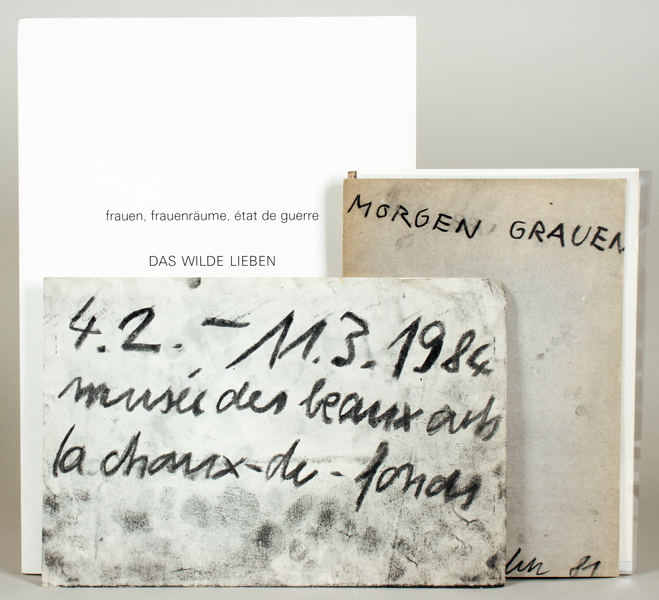 frauen, frauenräume, état de guerre
DAS WILDE LIEBEN
MORGEN GRAUEN
4.2. – 11.3.1984
musée des beaux arts
la chaux-de-fonds
81